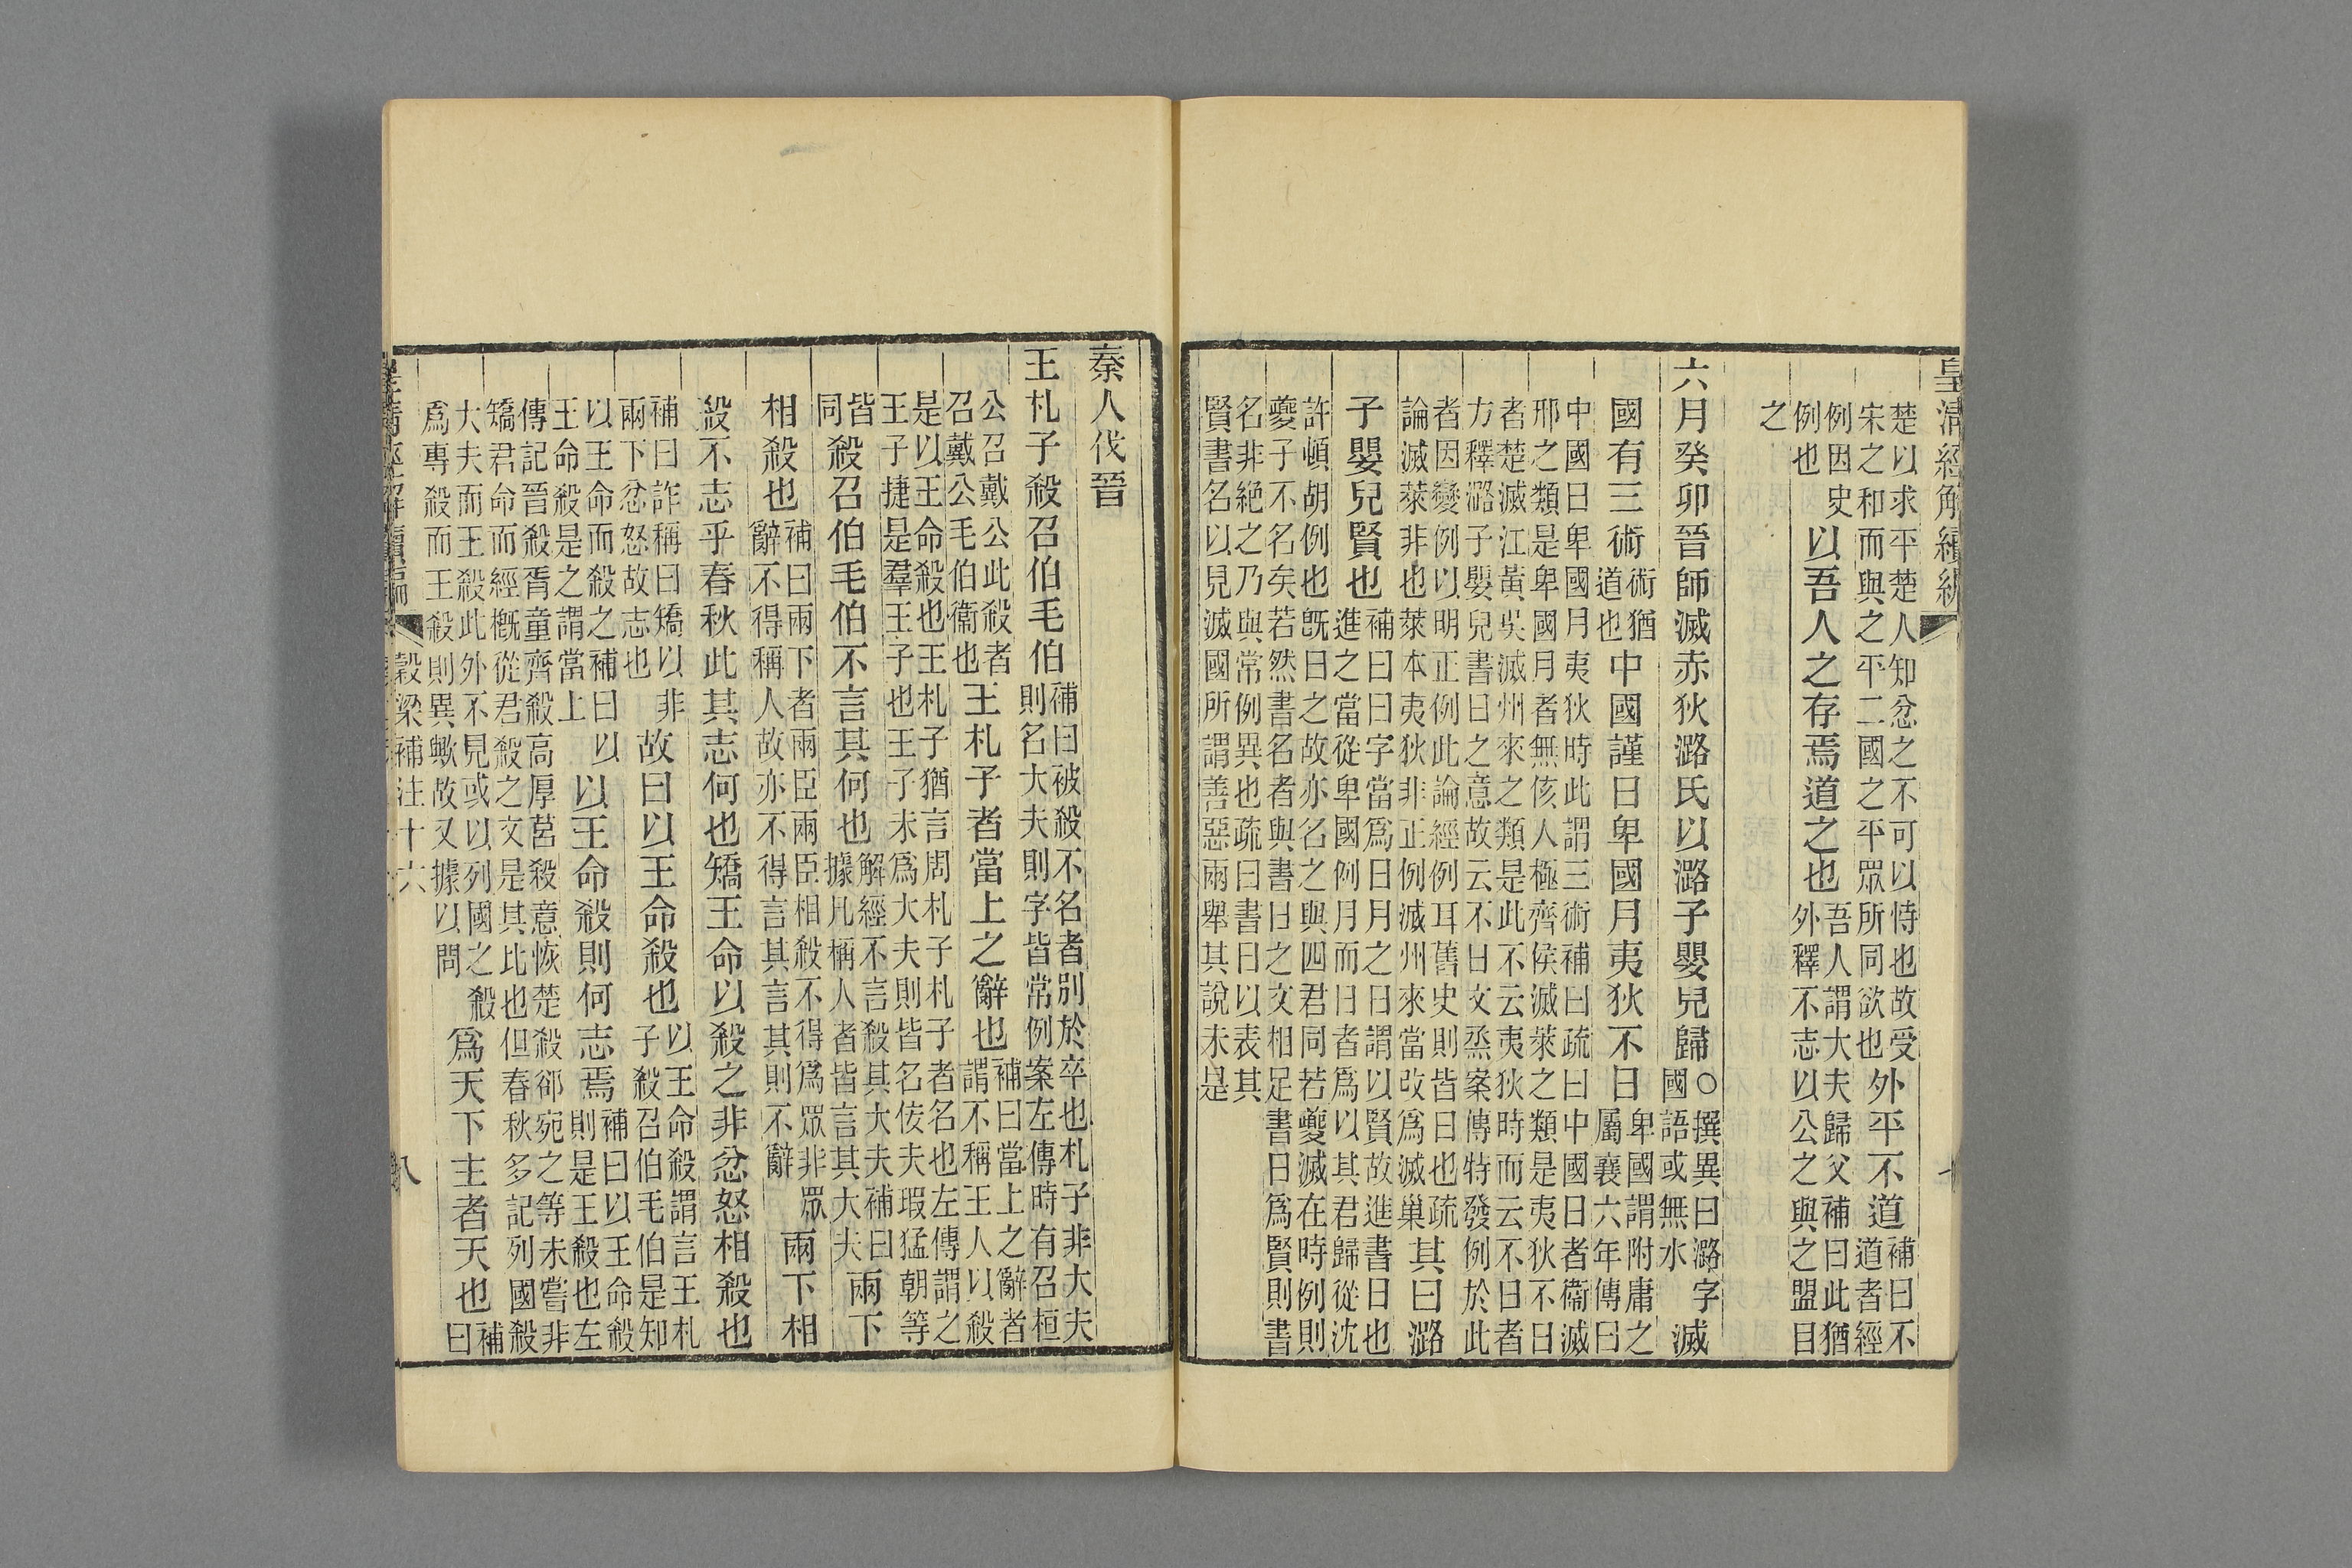 皇清經解續編
楚以求平楚人知忿之不可以恃也故受
宋之和而與之平二國之平眾所同欲也
外平不道
補曰不
道者經
例因史
例也
以吾人之存焉道之也
吾人謂大夫歸父補曰此猶
外釋不志以公之與之盟目
之
六月癸卯晉師滅赤狄潞氏以潞子嬰兒歸○
撰異曰潞字
國語或無水
滅
國有三術
術猶
道也
中國謹日卑國月夷狄不日
卑國謂附庸之
屬襄六年傳曰
中國日卑國月夷狄時此謂三術補曰疏曰中國日者衞滅
邢之類是卑國月者無侅人極齊侯滅萊之類是夷狄不日
者楚滅江黃吳滅州來之類是此不云夷狄時而云不日者
方釋潞子嬰兒書日之意故云不日文烝案傳特發例於此
者因變例以明正例此論經例耳舊史則皆曰也疏
論滅萊非也萊本夷狄非正例滅州來當改爲滅巢
其曰潞
子嬰兒賢也
補曰曰字當爲日月之日謂以賢故進書日也
進之當從卑國例月而日者爲以其君歸從沈
許頓胡例也既日之故亦名之與四君同若夔滅在時例則
夔子不名矣若然書名者與書日之文相足書日爲賢則書
名非絕之乃與常例異也疏曰書日以表其
賢書名以見滅國所謂善惡兩舉其說未是
秦人伐晉
王札子殺召伯毛伯
補曰被殺不名者別於卒也札子非大夫
則名大夫則字皆常例案左傳時有召桓
公召戴公此殺者
召戴公毛伯衞也
王札子者當上之辭也
補曰當上之辭者
謂不稱王人以殺
是以王命殺也王札子猶言周札子札子者名也左傳謂之
王子捷是羣王子也王子未爲大夫則皆名佞夫瑕猛朝等
皆
同
殺召伯毛伯不言其何也
解經不言殺其大夫補曰
據凡稱人者皆言其大夫
兩下
相殺也
補曰兩下者兩臣兩臣相殺不得爲眾非眾
辭不得稱人故亦不得言其言其則不辭
兩下相
殺不志乎春秋此其志何也矯王命以殺之非忿怒相殺也
補曰詐稱曰矯以非
兩下忿怒故志也
故曰以王命殺也
以王命殺謂言王札
子殺召伯毛伯是知
以王命而殺之補曰以
王命殺是之謂當上
以王命殺則何志焉
補曰以王命殺
則是王殺也左
傳記晉殺胥童齊殺高厚莒殺意恢楚殺郤宛之等未嘗非
矯君命而經概從君殺之文是其比也但春秋多記列國殺
大夫而王殺此外不見或以列國之殺
爲專殺而王殺則異歟故又據以問
爲天下主者天也
補
曰
穀梁補注十六
八